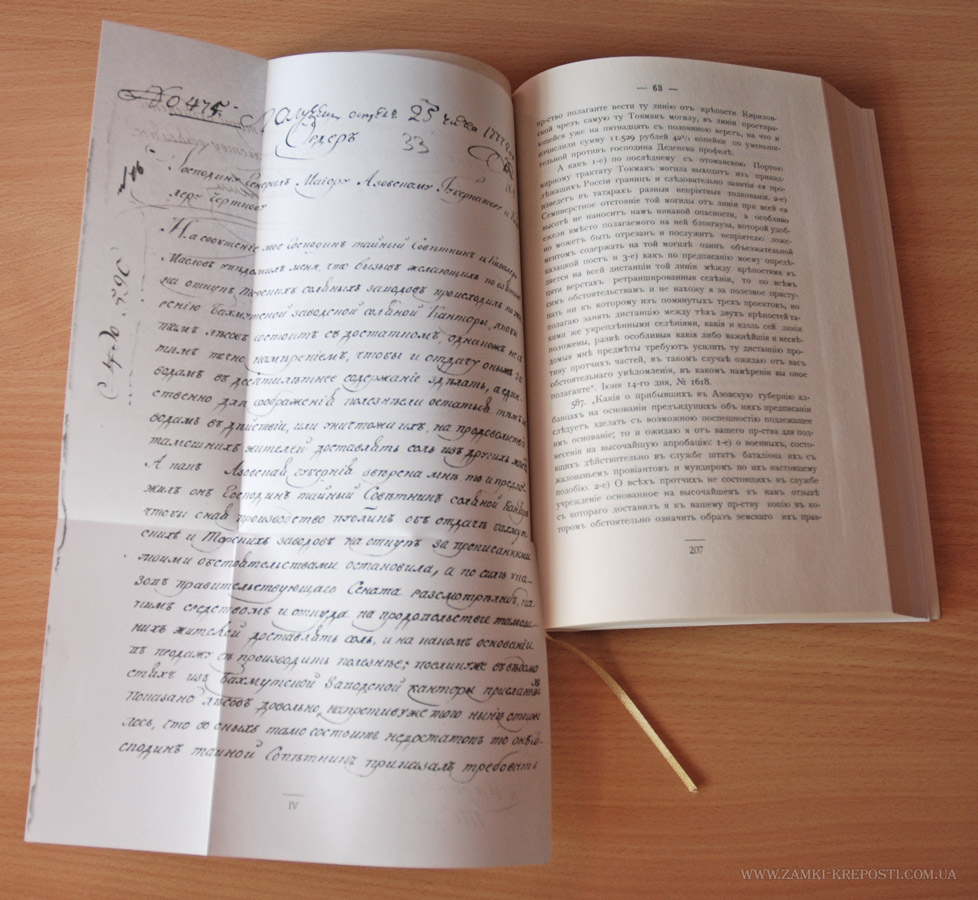 № 475.
Получен 25
Ордеръ 33
Господину Генералъ Маіору Азовскому Губернатору и
леру Черткову
На сообщение мое Господинъ тайный Советникъ и Кавалеръ
Масловъ уведомилъ меня, что вызывъ желающихъ
на откупъ Торскихъ соляныхъ заводовъ происходилъ
Бахмутской заводской соляной Канторы,
лесовъ состоитъ съ достаткомъ, однакожъ не
темъ точно намерениемъ, чтобы и отдачу онымъ за
водамъ въ десятилетнее содержание зделать, а един
ственно для соображения полезнели остатся темъ за
водамъ въ действии, или уничтожа ихъ, на продовольствие
тамошнихъ жителей доставлять соль изъ другихъ местъ
А какъ Азовская Губерния вверена мне то и предло
жилъ онъ Господинъ тайный Советникъ соляной Канторе
чтобы она производство публикъ объ отдаче бахмут
скихъ и Торскихъ заводовъ на откупъ за прописанными
моими обстоятельствами остановила, а по силе ука
зовъ правительствующаго Сената разсмотрела бъ, ка
кимъ средствомъ и откуда на продовольствие тамош
нихъ жителей доставлять соль, и на какомъ основании
въ продажу ее производить полезнее; поелику же въ ведомо
стяхъ изъ Бахмутской Заводской канторы присланныхъ
показано лесовъ довольно, напротив уже того ныне откры
лось, что во оныхъ тамо состоитъ недостатокъ то онъ Го
сподинъ тайной Советникъ приказалъ требовать
IV
— 63 —
пр-ство полагаете вести ту линію отъ крѣпости Кириловской
чрезъ самую ту Токмакъ могилу, въ линіи простира-
ющейся уже на пятнадцать съ половиною верстъ, на что и
изчислили сумму 11.599 рублей 42¼ копейки по уменьши-
тельной противъ господина Деденева профилѣ.
А какъ 1-е) по послѣднему съ отоманскою Портою
мирному трактату Токмакъ могила выходитъ изъ принад-
лежащихъ Россіи границъ и слѣдовательно занятія ея про-
изведетъ въ татарахъ разныя непріятныя толкованія. 2-е)
Семиверстное отстояніе той могилы отъ линіи при всей ея
высотѣ не наноситъ намъ никакой опасности, а особливо
ежели вмѣсто полагаемаго на ней блокгауза, которой удоб-
но можетъ быть отрезан и послужить непріятелю ложе-
ментомъ содержать на той могилѣ одинъ объѣвательной
казацкой постъ и 3-е) какъ по предписанію моему опредѣ-
ляется на всей дистанціи той линіи между крѣпостьми въ
пяти верстахъ ретраншированныя селенія, то по всѣмъ
симъ обстоятельствамъ и не нахожу я за полезное присту-
пать ни къ которому изъ помянутыхъ трехъ проектовъ, но
полагаю занять дистанцію между тѣхъ двухъ крѣпостей та-
кими же укрепленными селеніями, какія и вдоль сей линіи
положены, развѣ особливыя какія либо важнейшія и несвѣ-
домыя мнѣ предметы требуютъ усилить ту дистанцію про-
тиву протчихъ частей, въ такомъ случаѣ ожидаю отъ васъ
обстоятельнаго увѣдомленія, въ какомъ намѣреніи вы оное
полагаете". Іюня 14-го дня, № 1618.
587. „Какія о прибывшихъ въ Азовскую губернію ал-
банцахъ на основаніи прежъидущихъ объ нихъ предписаніи
слѣдуетъ зделать съ возможною поспешностію подлежащее
имъ основаніе; то и ожидаю я отъ вашего пр-ства для под-
несенія на высочайшую апробацію: 1-е) о военныхъ, состо-
ящихъ дѣйствительно въ службе штатъ баталіона ихъ съ
жалованьемъ провіантомъ и мундиромъ по ихъ настоящему
подобію. 2-е) О всѣхъ протчихъ не состоящихъ въ службе
учрежденіе основанное на высочайшемъ къ намъ отзывѣ
съ котораго доставилъ я къ вашему пр-ству копію въ ко-
торомъ обстоятельно означить образъ земскаго ихъ прав-
207
WWW.ZAMKI-KREPOSTI.COM.UA